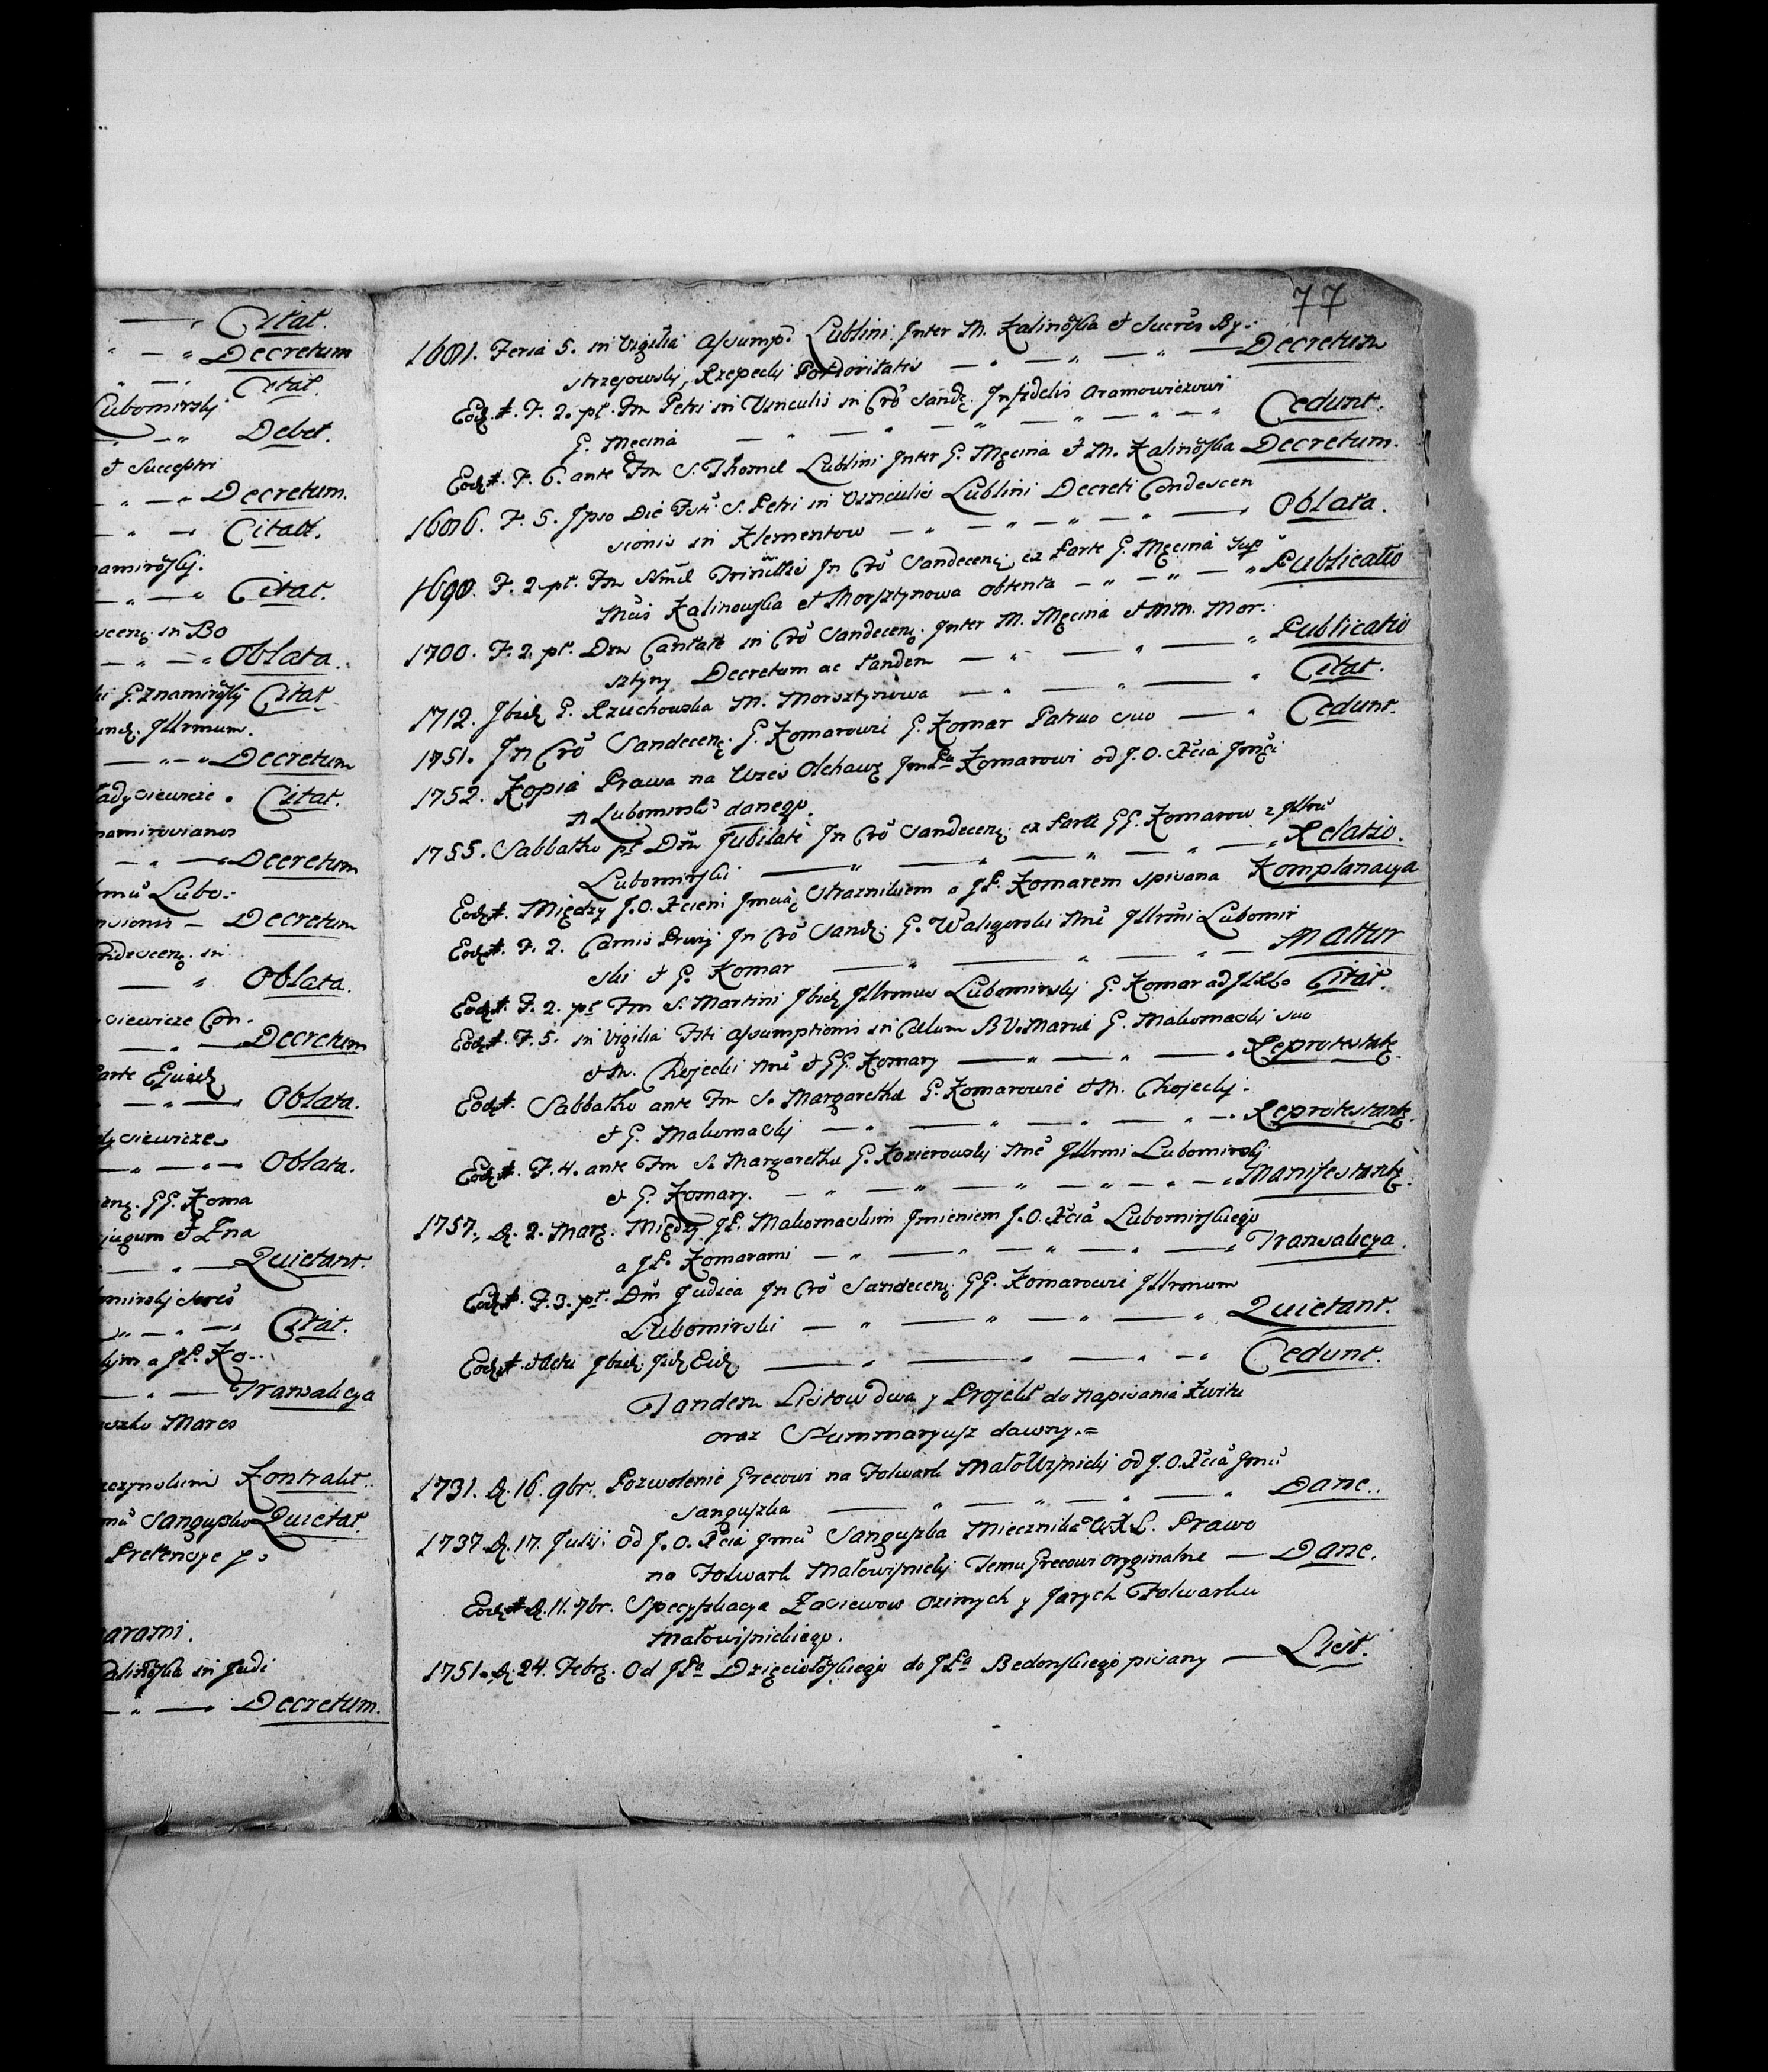 Citat.
Decretum
Citat.
Lubomirskj
Debet.
et Successri
Decretum.
Citatt.
namiroskj.
Citat.
scenz. in Bo
Oblata.
ki G. Znamiroskj Citat
Illrmum.
Decretum
ladysiewicze. Citat.
namirovianos
Decretum
Lubo:
nsionis – Decretum
ndescenz. in
Oblata.
siewicze Con.
Decretum
parte Ejusd
Oblata.
dysiewicze
Oblata.
enz. GG. Koma
jugum et Zna
Quietant.
omirskj
Citat.
kim a JP. Ko..
Tranzakcya
uszko Marco
rzynskim Kontrakt.
Sanguszko Quietat.
Pretensye po
marami.
Kalinoska in Judi
Decretum.
77
1681. Feria 5. in Vigilia Assump. Lublini Inter M. Kalinoska et Sucres By-
strzejowskj, Rzepeckj Potioritatis — Decretum
Eod. A. F. 2. pt. Fm Petri in Vinculis in Cro Sandz. Infidelis Aramowiczowi
G. Męcina — Cedunt.
Eodz A. F. 6. ante Fm S. Thomæ Lublini Inter G. Męcina et M. Kalinoska Decretum.
1686. F. 5. Ipso Die Fsti S. Petri in Vinculis Lublini Decreti Condescen
sionis in Klementow — Oblata.
1690. F. 2. pt. Fm SSmæ Trinittis In Cro Sandecenz. ex Parte G. Męcina Sup
Mcis Kalinowska et Morsztynowa obtenta — Publicatio
1700. F. 2. pt. Dm Cantate in Cro Sandecenz. Inter M. Męcina et MM. Mor.
sztyny Decretum ac Tandem — Publicatio
1712. Ibid. G. Rzuchowska M. Morsztynowa — Citat.
1751. In Cro Sandecenz. G. Komarowie G. Komar Patruo suo — Cedunt.
1752. Kopia Prawa na Wzcis Olchawę JmPa Komarowi od J. O. Xcia Jmści
Lubomirski danego.
1755. Sabbatho pt Dm Jubilate In Cro Sandecenz. ex Parte GG. Komarow z Illrm
Lubomirski — Relatio.
Eodz A. Między J. O. Xciem Jmcią Straznikiem a JP. Komarem spisana Komplanacya
Eodz A. F. 2. Carnis Privij In Cro Sandz. G. Waligorski Illrmi Lubomir
ski et G. Komar — Attur
Eodz A. F. 2. pt Fm S. Martini Ibid Illrmus Lubomirskj G. Komar Citat.
Eodz A. F. 5. in Vigilia Fsti Assumptionis in Cælum B. V. Mariæ G. Makomaski suo
et M. Chojecki et GG. Komary — Reprotestatz.
Eodz A. Sabbatho ante Fm S. Margaretha G. Komarowie et M. Chojeckj.
et G. Makomaskj — Reprotestantz.
Eodz A. F. 4. ante Fm S. Margaretha G. Kozierowskj Illrmi Lubomirskj
et G. Komary. — Manifestantz.
1757. D. 2. Marz. Między JP. Makomaskim Imieniem J. O. Xcia Lubomirskiego
a JP. Komarami — Tranzakcya.
Eodz A. F. 3. pt. Dm Judica In Cro Sandecenz. GG. Komarowie Illrmum
Lubomirski — Quietant.
Eodz A. et Actu Ibid. Iid. Eid. — Cedunt.
Tandem Listow dwa y Projekt do napisania Kwitu
oraz Summaryusz dawny.=
1731. D. 16. 9br. Pozwolenie Grecowi na Folwark MałoWisnicki od J. O. Xcia Jmci
Sanguszka — Dane..
1737. D. 17. Julij. Od J. O. Xcia Jmci Sanguszka Miecznika W.X.L. Prawo
na Folwark Małowisnicki Temu Grecowi oryginalne — Dane.
Eodz A. D. 11. 7br. Specyfikacya Zasiewow ozimych y Jarych Folwarku
Małowisnickiego.
1751. D. 24. Febrz. Od JPa Dzięciołoskiego do JPa Bedonskiego pisany — List.